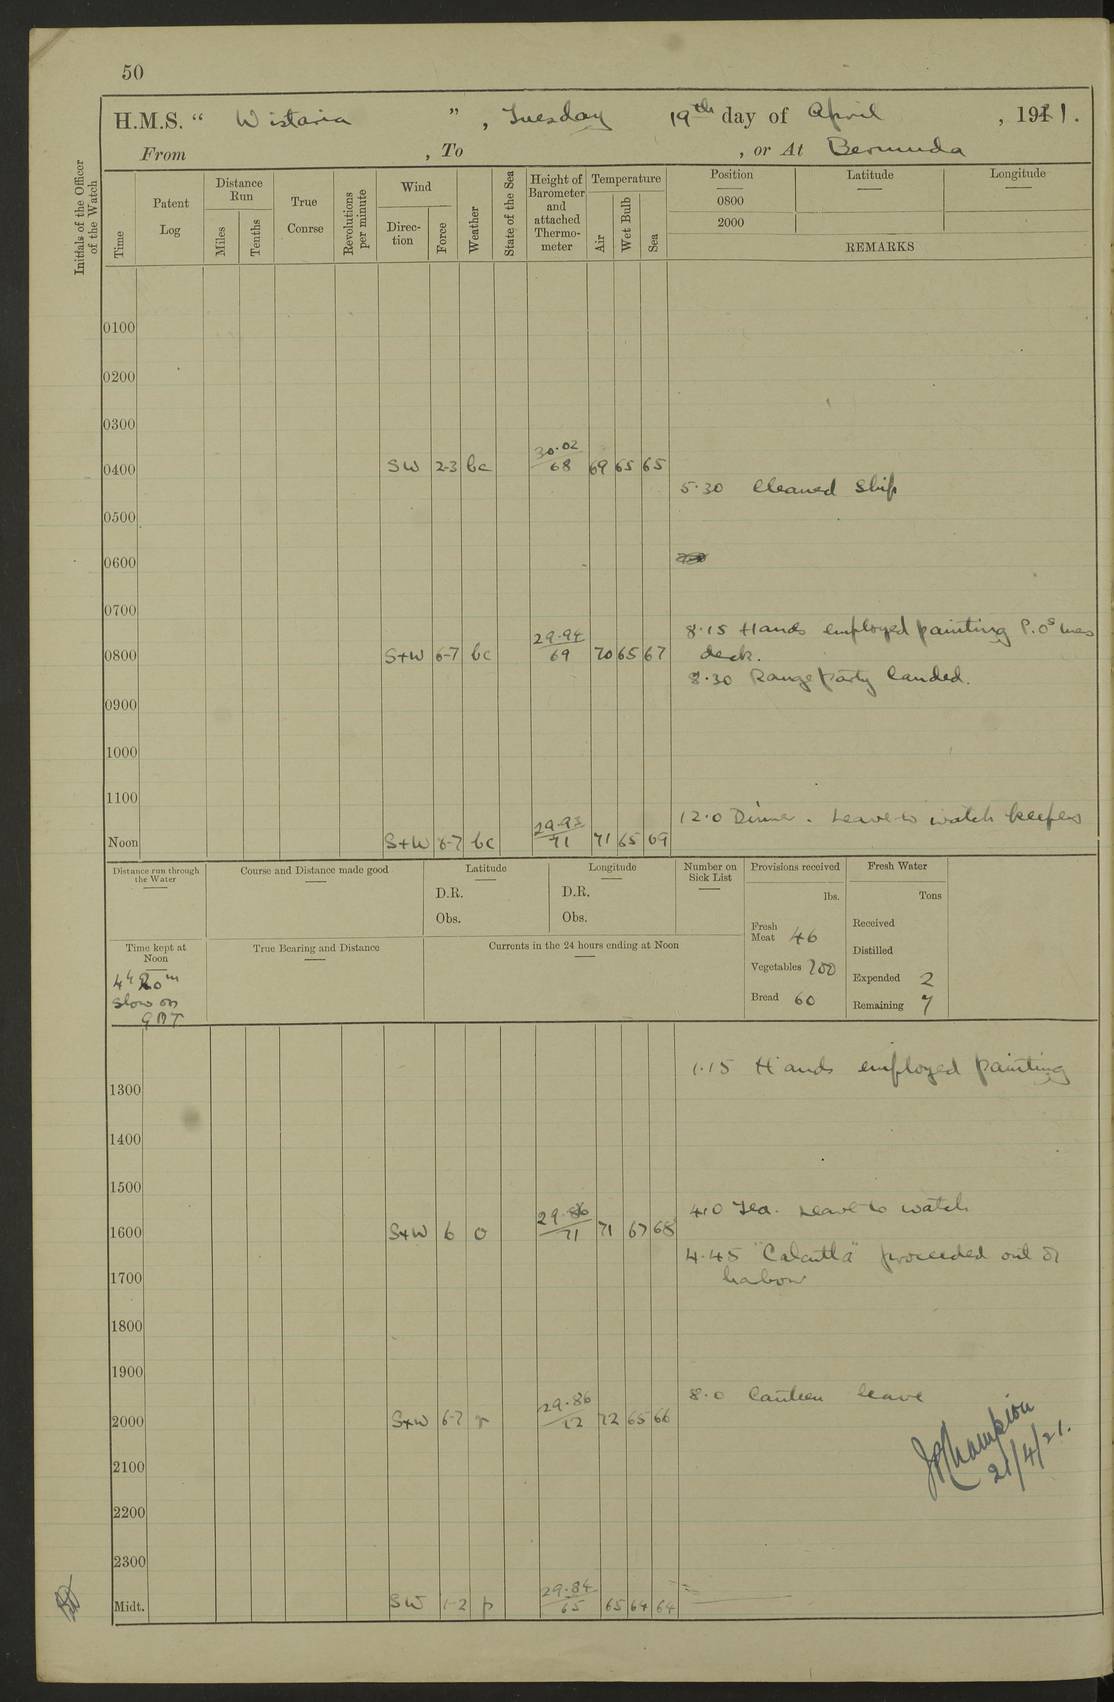 50
H.M.S. “ Wistaria ” , Tuesday 19th day of April , 1921.
From , To , or At Bermuda
Initials of the Officer of the Watch
Time
Patent Log
Distance Run
Miles
Tenths
True Conrse
Revolutions per minute
Wind
Direction
Force
Weather
State of the Sea
Height of Barometer and attached Thermometer
Temperature
Air
Wet Bulb
Sea
Position Latitude Longitude
0800
2000
REMARKS
0100
0200
0300
0400 SW 2-3 bc 30.02/68 69 65 65
5.30 Cleaned Ship
0500
0600
0700
8.15 Hands employed painting P.Os mess
0800 S+W 6-7 bc 29.94/69 70 65 67 deck.
8.30 Range party landed.
0900
1000
1100
12.0 Dinner. Leave to watch keepers
Noon S+W 6-7 bc 29.93/71 71 65 69
Distance run through the Water
Course and Distance made good
Latitude
D.R.
Obs.
Longitude
D.R.
Obs.
Number on Sick List
Provisions received
lbs.
Fresh Meat 46
Vegetables 200
Bread 60
Fresh Water
Tons
Received
Distilled
Expended 2
Remaining 7
Time kept at Noon
4h 20m
slow on
GMT
True Bearing and Distance
Currents in the 24 hours ending at Noon
1.15 Hands employed painting
1300
1400
1500
4.0 Tea. Leave to watch
1600 S+W 6 o 29.86/71 71 67 68
4.45 "Calcutta" proceeded out of
1700 harbour
1800
1900
8.0 Canteen leave
2000 S+W 6-7 r 29.86/72 72 65 66
Champion
21/4/21.
2100
2200
2300
Midt. SW 1-2 p 29.84/65 65 64 64